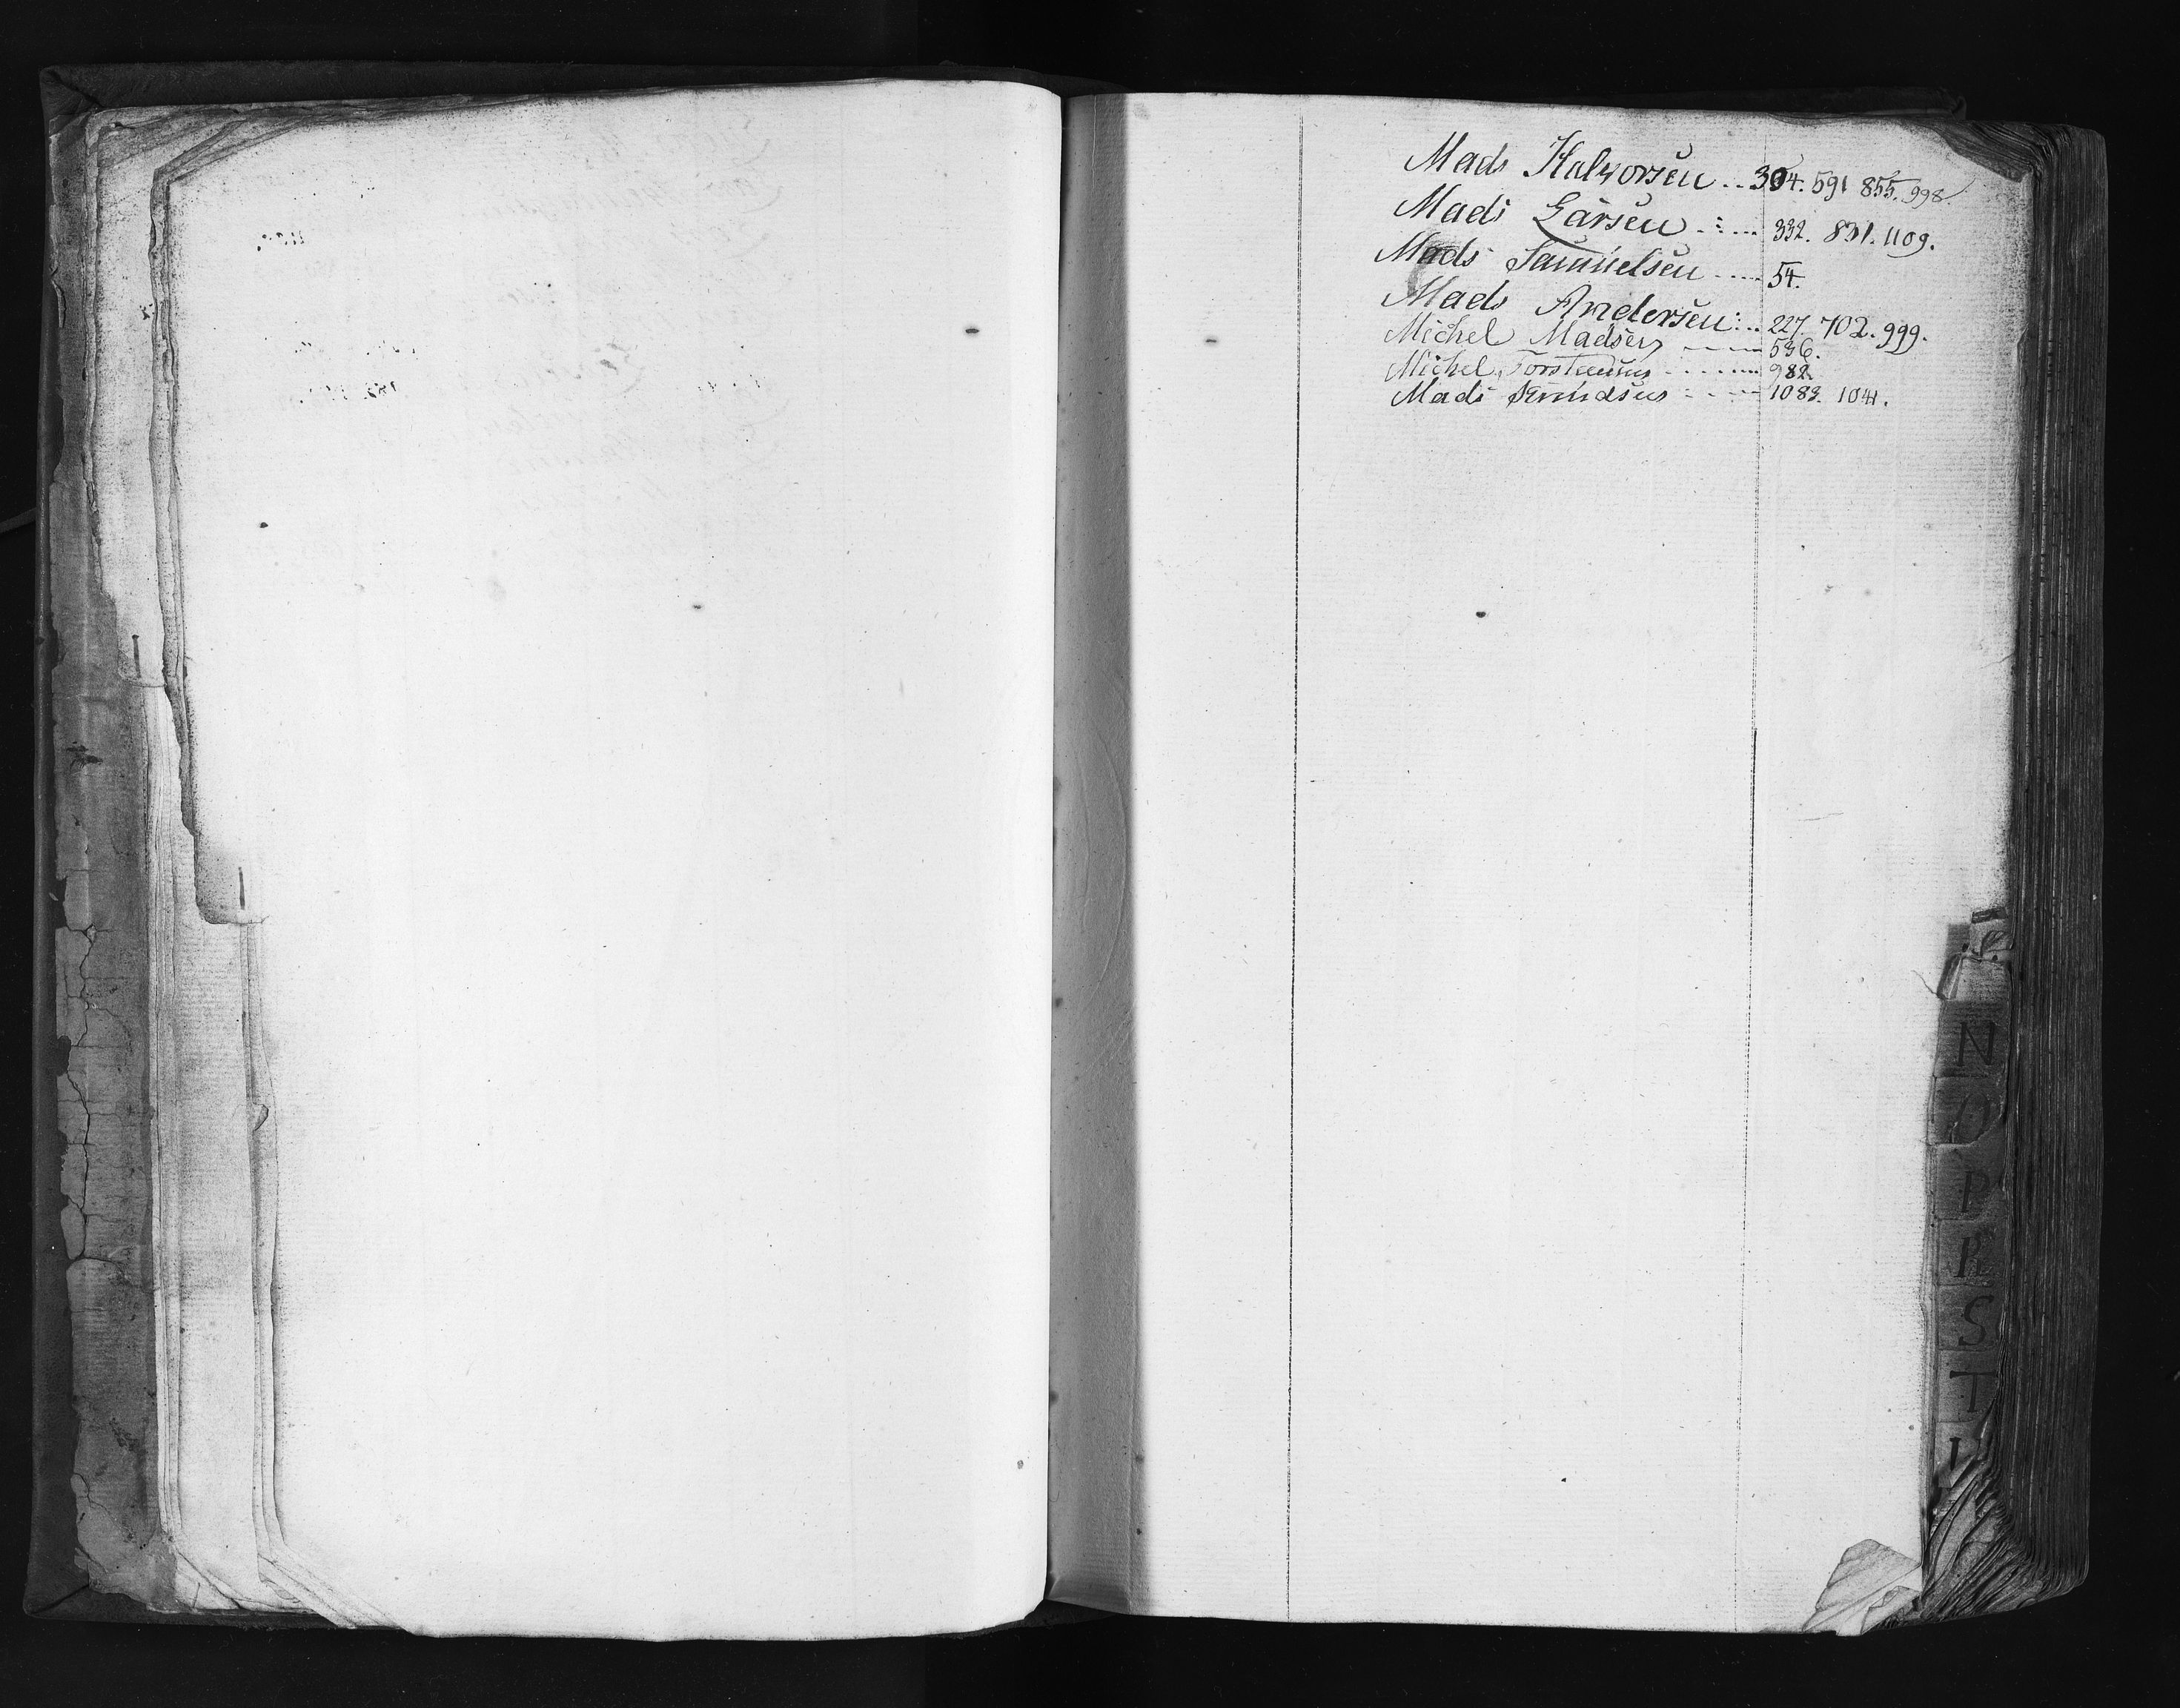 Mads Halvorsen .. 304. 591 855. 998.
Mads Larsen .:... 332. 831. 1109.
Mads Samuelsen .... 54.
Mads Andersen:.. 227. 702. 999.
Michel Madsen ---- 536.
Michel Torstensen ------ 982.
Mads ----- 1083. 1041.
N
O
P
R
S
T
V